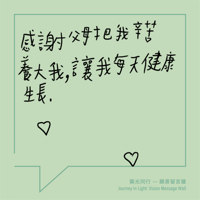 感謝父母把我辛苦
養大我,讓我每天健康
生長.
曙光同行 — 願景留言牆
Journey in Light: Vision Message Wall